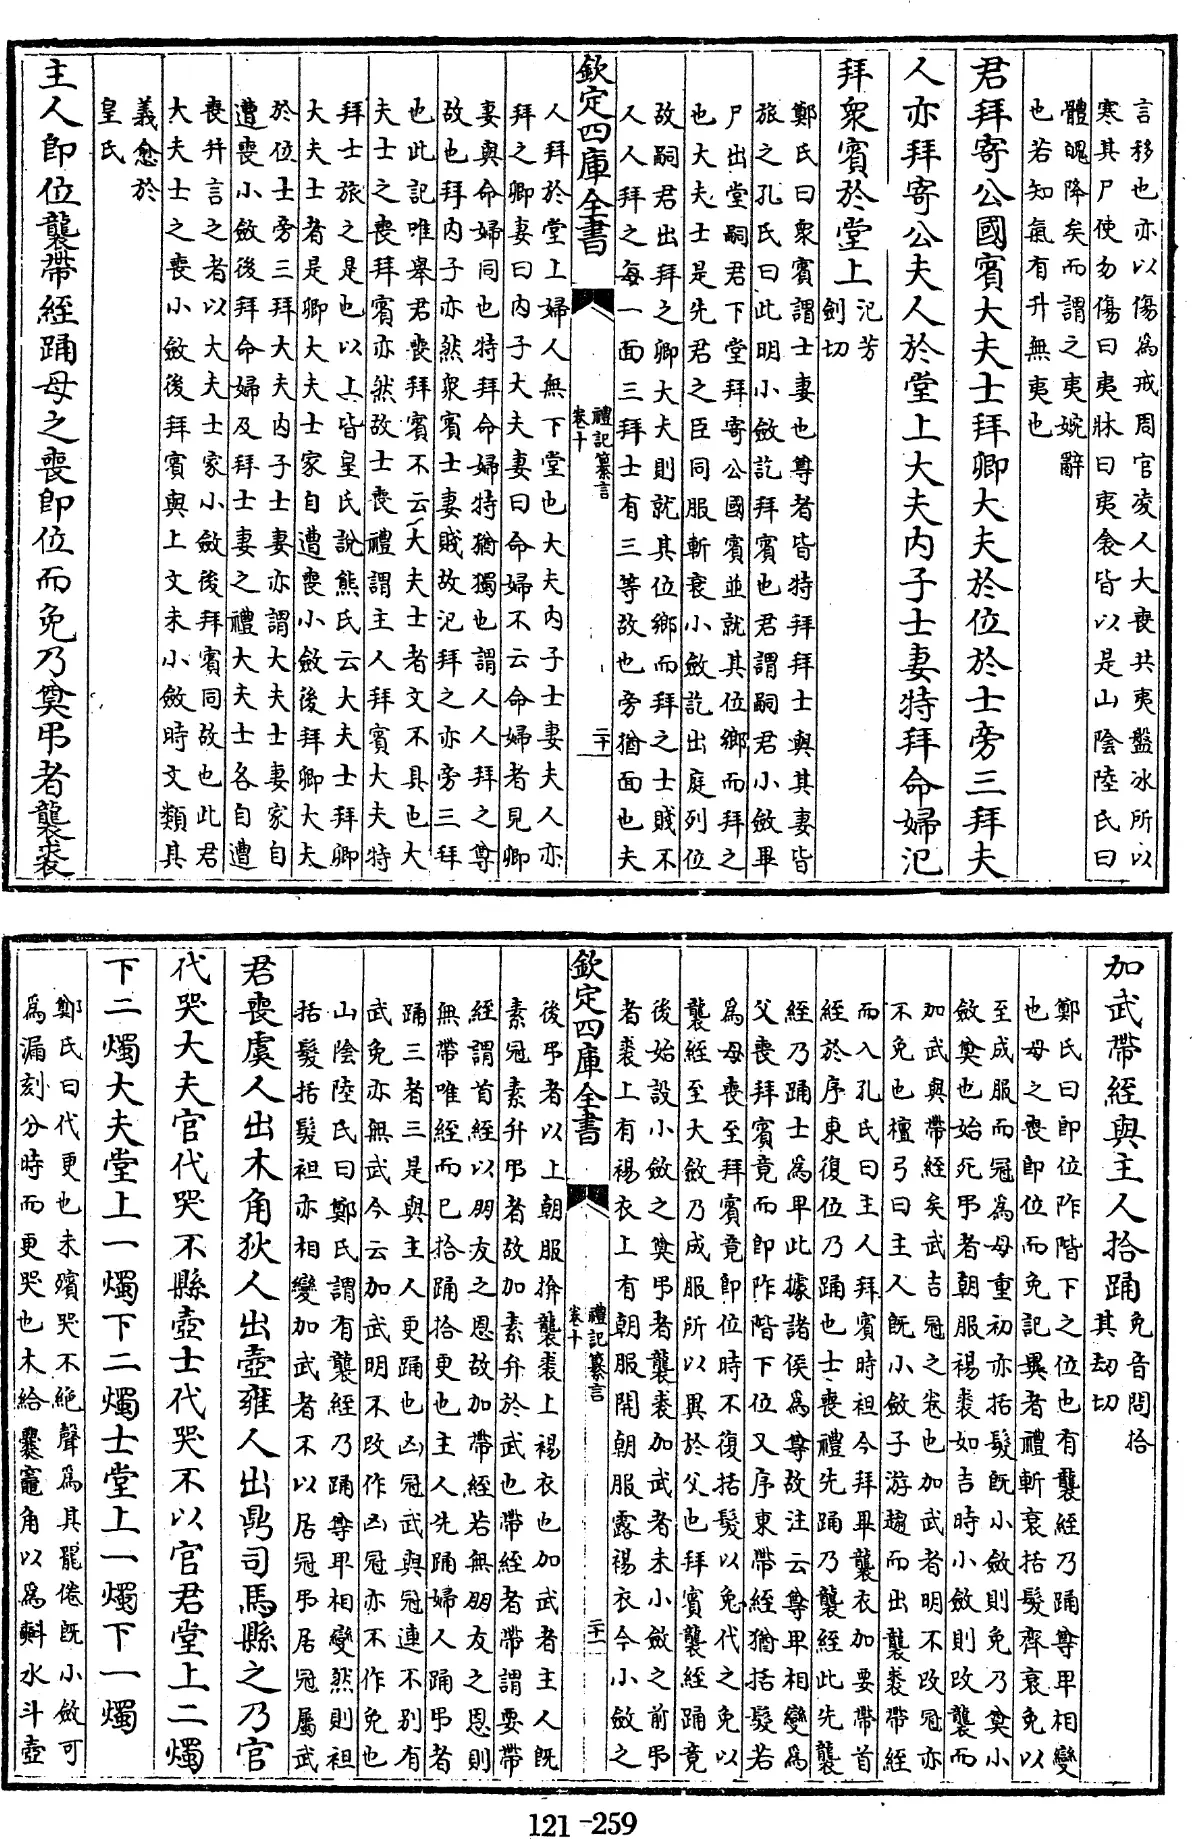 言移也亦以傷為戒周官凌人大喪共夷盤冰所以
寒其尸使勿傷曰夷牀曰夷衾皆以是山陰陸氏曰
體魄降矣而謂之夷婉辭
也若知氣有升無夷也
君拜寄公國賓大夫士拜卿大夫於位於士旁三拜夫
人亦拜寄公夫人於堂上大夫內子士妻特拜命婦氾
拜衆賓於堂上 氾芳劍切
鄭氏曰衆賓謂士妻也尊者皆特拜拜士與其妻皆
旅之孔氏曰此明小斂訖拜賓也君謂嗣君小斂畢
尸出堂嗣君下堂拜寄公國賓並就其位鄉而拜之
也大夫士是先君之臣同服斬衰小斂訖出庭列位
故嗣君出拜之卿大夫則就其位鄉而拜之士賤不
人人拜之每一面三拜士有三等故也旁猶面也夫
欽定四庫全書 禮記纂言 卷十 二十
人拜於堂上婦人無下堂也大夫內子士妻夫人亦
拜之卿妻曰內子大夫妻曰命婦不云命婦者見卿
妻與命婦同也特拜命婦特猶獨也謂人人拜之尊
故也拜內子亦然衆賓士妻賤故氾拜之亦旁三拜
也此記唯舉君喪拜賓不云大夫士者文不具也大
夫士之喪拜賓亦然故士喪禮謂主人拜賓大夫特
拜士旅之是也以上皆皇氏說熊氏云大夫士拜卿
大夫士者是卿大夫士家自遭喪小斂後拜卿大夫
於位士旁三拜大夫內子士妻亦謂大夫士妻家自
遭喪小斂後拜命婦及拜士妻之禮大夫士各自遭
喪幷言之者以大夫士家小斂後拜賓同故也此君
大夫士之喪小斂後拜賓與上文未小斂時文類其
義愈於
皇氏
主人即位襲帶絰踊母之喪即位而免乃奠弔者襲裘
加武帶絰與主人拾踊 免音問拾其劫切
鄭氏曰即位阼階下之位也有襲絰乃踊尊卑相變
也母之喪即位而免記異者禮斬衰括髮齊衰免以
至成服而冠為母重初亦括髮既小斂則免乃奠小
斂奠也始死弔者朝服裼裘如吉時小斂則改襲而
加武與帶絰矣武吉冠之卷也加武者明不改冠亦
不免也檀弓曰主人既小斂子游趨而出襲裘帶絰
而入孔氏曰主人拜賓時袒今拜畢襲衣加要帶首
絰於序東復位乃踊也士喪禮先踊乃襲絰此先襲
絰乃踊士為卑此據諸侯為尊故注云尊卑相變為
父喪拜賓竟而即阼階下位又序東帶絰猶括髮若
為母喪至拜賓竟即位時不復括髮以免代之免以
襲絰至大斂乃成服所以異於父也拜賓襲絰踊竟
後始設小斂之奠弔者襲裘加武者未小斂之前弔
者裘上有裼衣上有朝服開朝服露裼衣今小斂之
欽定四庫全書 禮記纂言 卷十 二十一
後弔者以上朝服揜襲裘上裼衣也加武者主人既
素冠素弁弔者故加素弁於武也帶絰者帶謂要帶
絰謂首絰以朋友之恩故加帶絰若無朋友之恩則
無帶唯絰而已拾踊拾更也主人先踊婦人踊弔者
踊三者三是與主人更踊也凶冠武與冠連不別有
武免亦無武今云加武明不改作凶冠亦不作免也
山陰陸氏曰鄭氏謂有襲絰乃踊尊卑相變然則袒
括髮括髮袒亦相變加武者不以居冠弔居冠屬武
君喪虞人出木角狄人出壺雍人出鼎司馬縣之乃官
代哭大夫官代哭不縣壺士代哭不以官君堂上二燭
下二燭大夫堂上一燭下二燭士堂上一燭下一燭
鄭氏曰代更也未殯哭不絕聲為其罷倦既小斂可
為漏刻分時而更哭也木給爨竈角以為㪺水斗壺
121-259